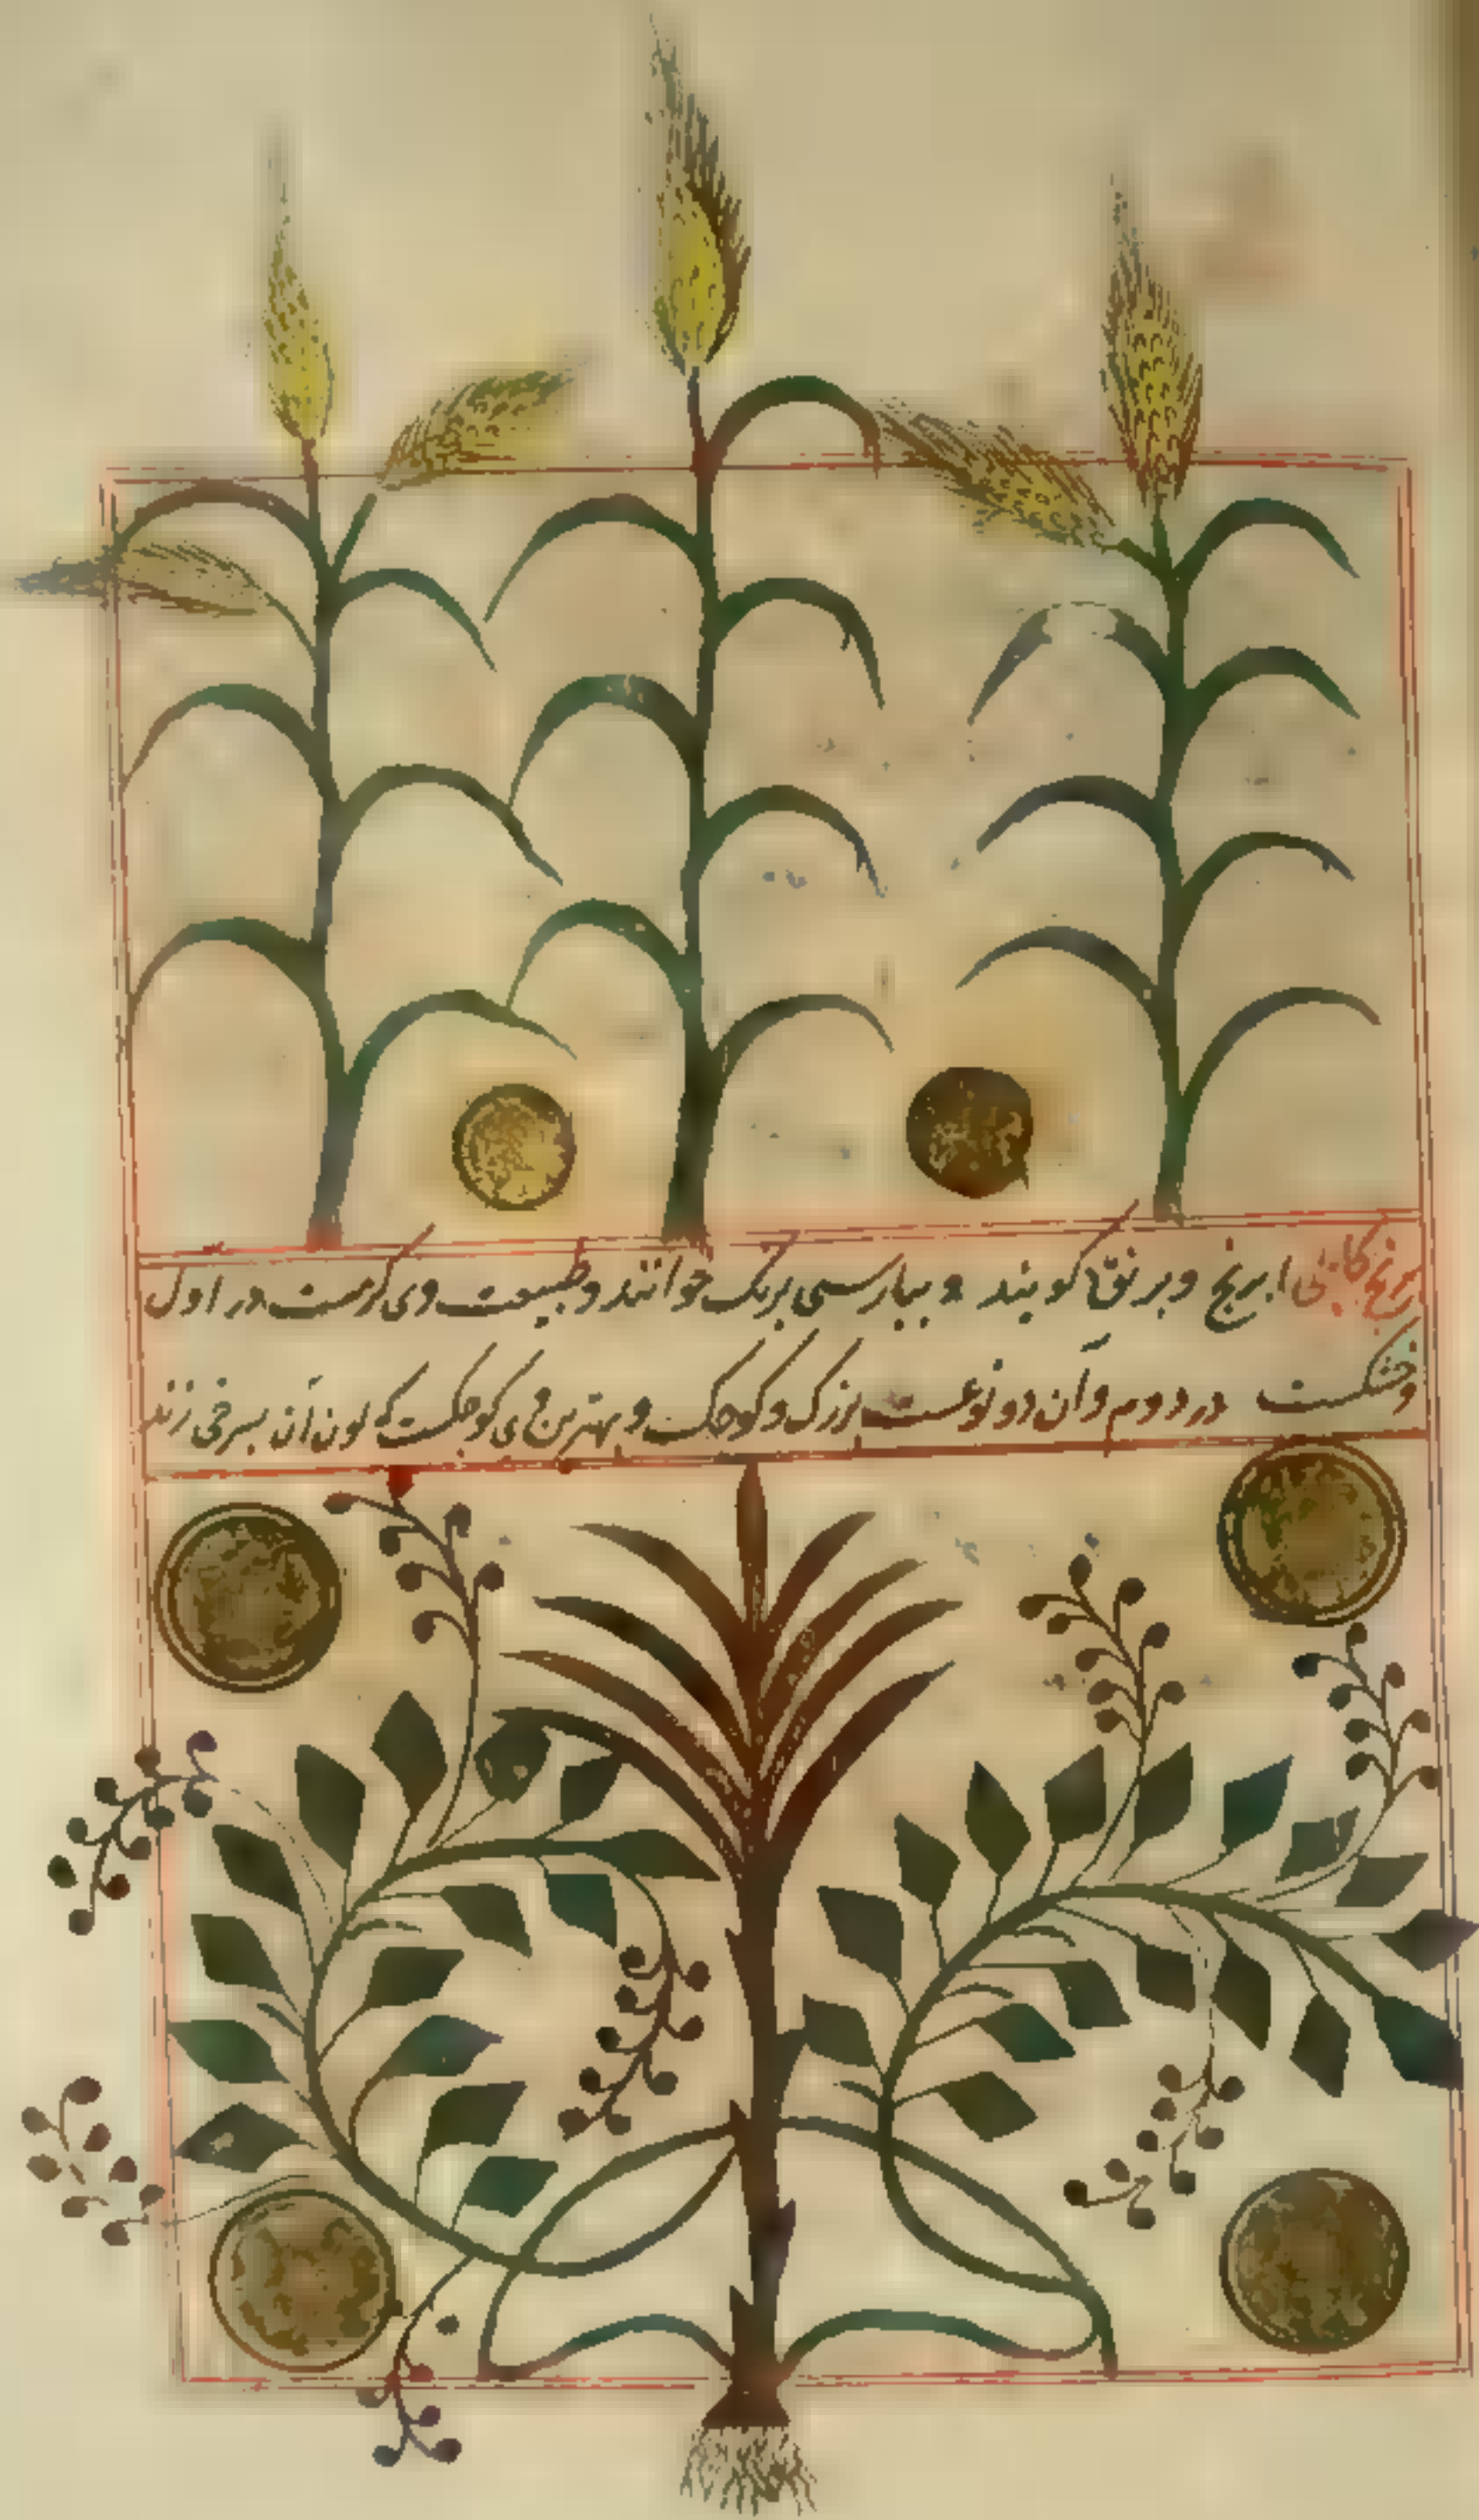 برنج کابلی ابرنج و برنق کویند و بپارسی برنک خوانند و طبیعت وی کرمست در اول
و خشکست در دوم و آن دو نوعست بزرک و کوچک و بهترین وی کوچکست که لون آن بسرخی زند